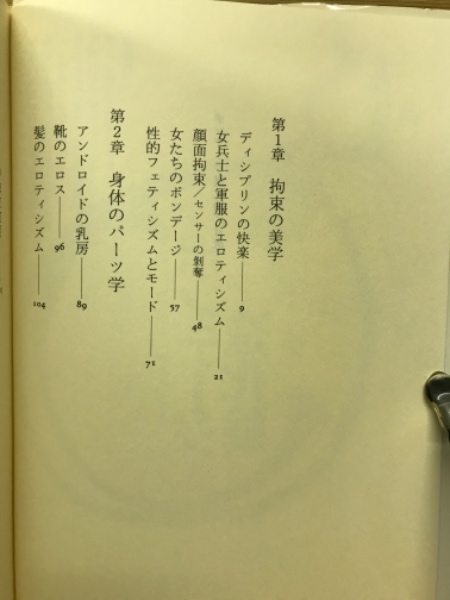 第1章 拘束の美学
ディシプリンの快楽——9
女兵士と軍服のエロティシズム——21
顔面拘束／センサーの剝奪——48
女たちのボンデージ——57
性的フェティシズムとモード——71
第2章 身体のパーツ学
アンドロイドの乳房——89
靴のエロス——96
髪のエロティシズム——104